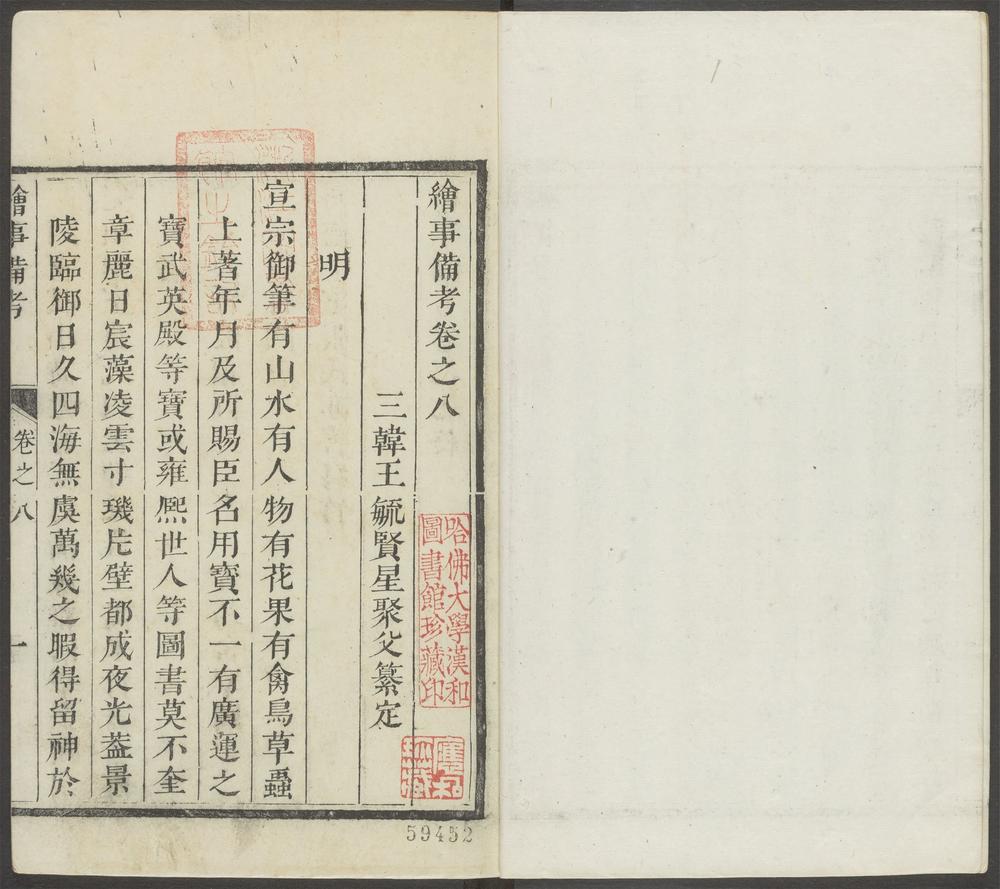 繪事備考卷之八
三韓王毓賢星聚父纂定
明
宣宗御筆有山水有人物有花果有禽鳥草蟲
上著年月及所賜臣名用寶不一有廣運之
寶武英殿等寶或雍熙世人等圖書莫不奎
章麗日宸藻凌雲寸璣片壁都成夜光葢景
陵臨御日久四海無虞萬幾之暇得留神於
繪事備考
卷之八
一
哈佛大學漢和
圖書館珍藏印
59452